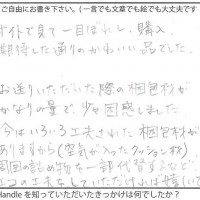 ご自由にお書き下さい。(一言でも文章でも絵でも大丈夫です
サイトで見て一目ぼれし、購入
期待した通りのかわいい品でした。
お送りいただいた際の梱包材が
かなりの量で、少々困惑しました
今はいろいろ工夫された梱包材が
ありますから(空気が入ったクッション材
周囲の詰め物を一部代替するなど
エコの工夫をしていただければ嬉しいで
Handleを知っていただいたきっかけは何でしたか?